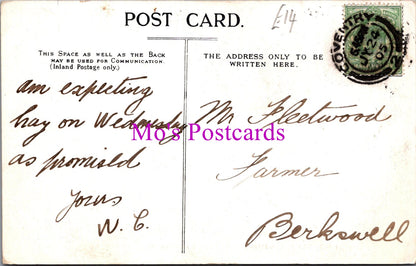 POST CARD.
£14
THIS SPACE AS WELL AS THE BACK
MAY BE USED FOR COMMUNICATION.
(Inland Postage only.)
THE ADDRESS ONLY TO BE
WRITTEN HERE.
COVENTRY
am expecting
hay on Wednesday
as promised
Yours
N. C.
Mr Fleetwood
Farmer
Berkswell
Mo's Postcards